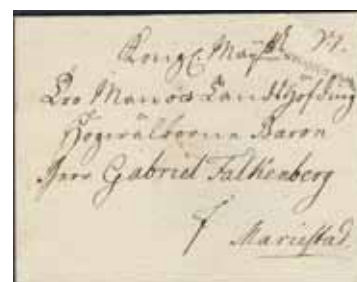 Kongl. Maÿtts
Tro Man och Landshöfding
Högvälborne Baron
Herr Gabriel Falkenberg
Mariestad